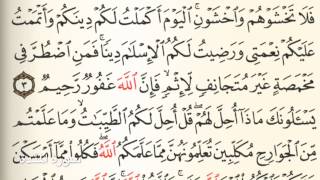 فَلَا تَخْشَوْهُمْ وَٱخْشَوْنِ ۚ ٱلْيَوْمَ أَكْمَلْتُ لَكُمْ دِينَكُمْ وَأَتْمَمْتُ
عَلَيْكُمْ نِعْمَتِى وَرَضِيتُ لَكُمُ ٱلْإِسْلَٰمَ دِينًا ۚ فَمَنِ ٱضْطُرَّ فِى
مَخْمَصَةٍ غَيْرَ مُتَجَانِفٍ لِّإِثْمٍ ۙ فَإِنَّ ٱللَّهَ غَفُورٌ رَّحِيمٌ ٣
يَسْـَٔلُونَكَ مَاذَآ أُحِلَّ لَهُمْ ۖ قُلْ أُحِلَّ لَكُمُ ٱلطَّيِّبَٰتُ ۙ وَمَا عَلَّمْتُم
مِّنَ ٱلْجَوَارِحِ مُكَلِّبِينَ تُعَلِّمُونَهُنَّ مِمَّا عَلَّمَكُمُ ٱللَّهُ ۖ فَكُلُوا۟ مِمَّآ أَمْسَكْنَ